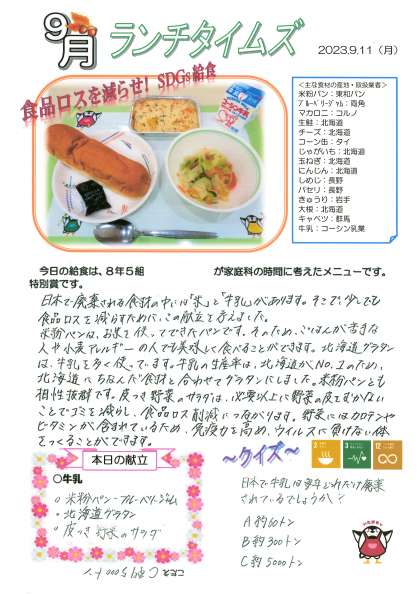 9月 ランチタイムズ
2023.9.11（月）
食品ロスを減らせ！SDGs給食
＜主な食材の産地・取扱業者＞
米粉パン：東和パン
ﾌﾞﾙｰﾍﾞﾘｰｼﾞｬﾑ：両角
マカロニ：コルノ
生鮭：北海道
チーズ：北海道
コーン缶：タイ
じゃがいも：北海道
玉ねぎ：北海道
にんじん：北海道
しめじ：長野
パセリ：長野
きゅうり：岩手
大根：北海道
キャベツ：群馬
牛乳：コーシン乳業
今日の給食は、８年５組 が家庭科の時間に考えたメニューです。
特別賞です。
日本で廃棄される食材の中には「米」と「牛乳」があります。そこで、少しでも
食品ロスを減らすために、この献立を考えました。
米粉パンは、お米を使ってできたパンです。そのため、ごはんが苦手な
人や小麦アレルギーの人でも美味しく食べることができます。北海道グラタン
は、牛乳を多く使っています。牛乳の生産率は、北海道がNo.1のため、
北海道にちなんだ食材と合わせてグラタンにしました。米粉パンとも
相性抜群です。皮つき野菜のサラダは、必要以上に野菜の皮をむかない
ことでゴミを減らし、食品ロス削減につながります。野菜にはカロテンや
ビタミンが含まれているため、免疫力を高め、ウイルスに負けない体
をつくることができます。
本日の献立
○牛乳
○米粉パン・ブルーベリージャム
○北海道グラタン
○皮つき野菜のサラダ
～クイズ～
2
3
12
日本で牛乳は毎年どれだけ廃棄
されているでしょうか？
A 約60トン
B 約300トン
C 約5000トン
こたえ C 約5000トン